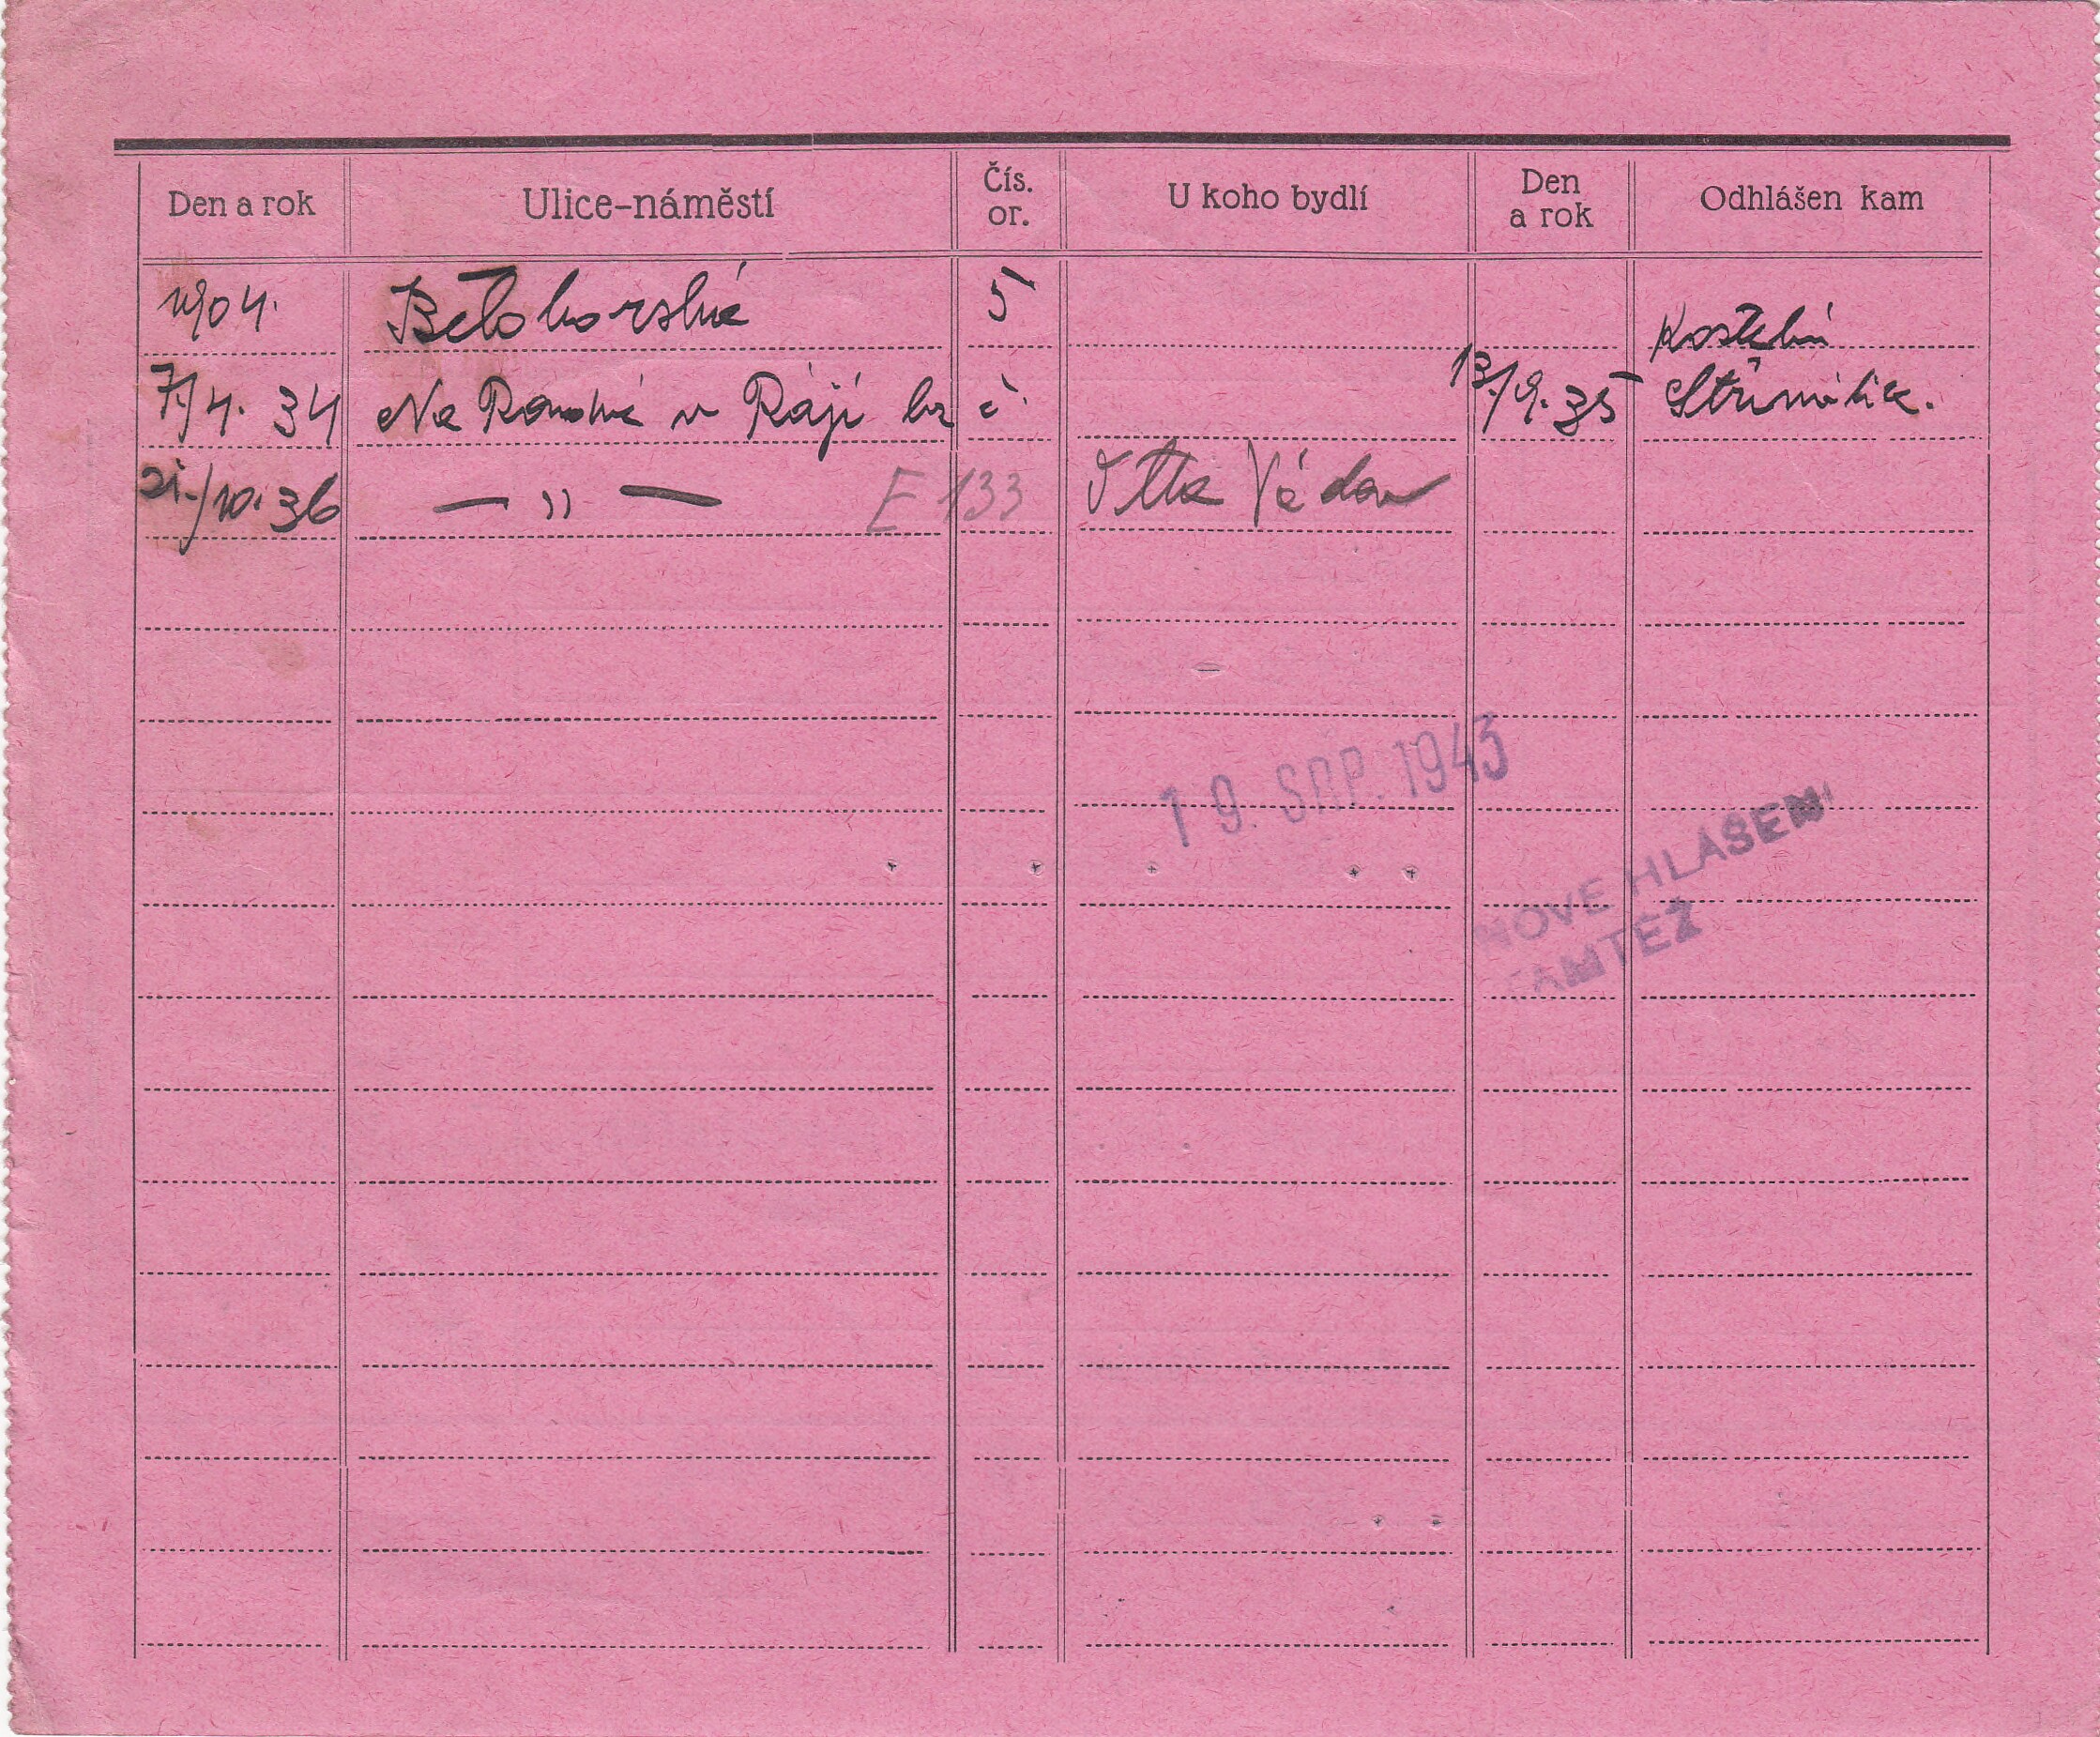 Den a rok Ulice-náměstí Čís. or. U koho bydlí Den a rok Odhlášen kam
1904. Bělohorská 5
Kostelní
7./4. 34 Na v Ráji bez č. 13./9. 35 Střimelice.
21./10. 36 — " — E 133 Vlk Václav
19. SRP. 1943
NOVÉ HLÁŠENÍ
TAMTÉŽ